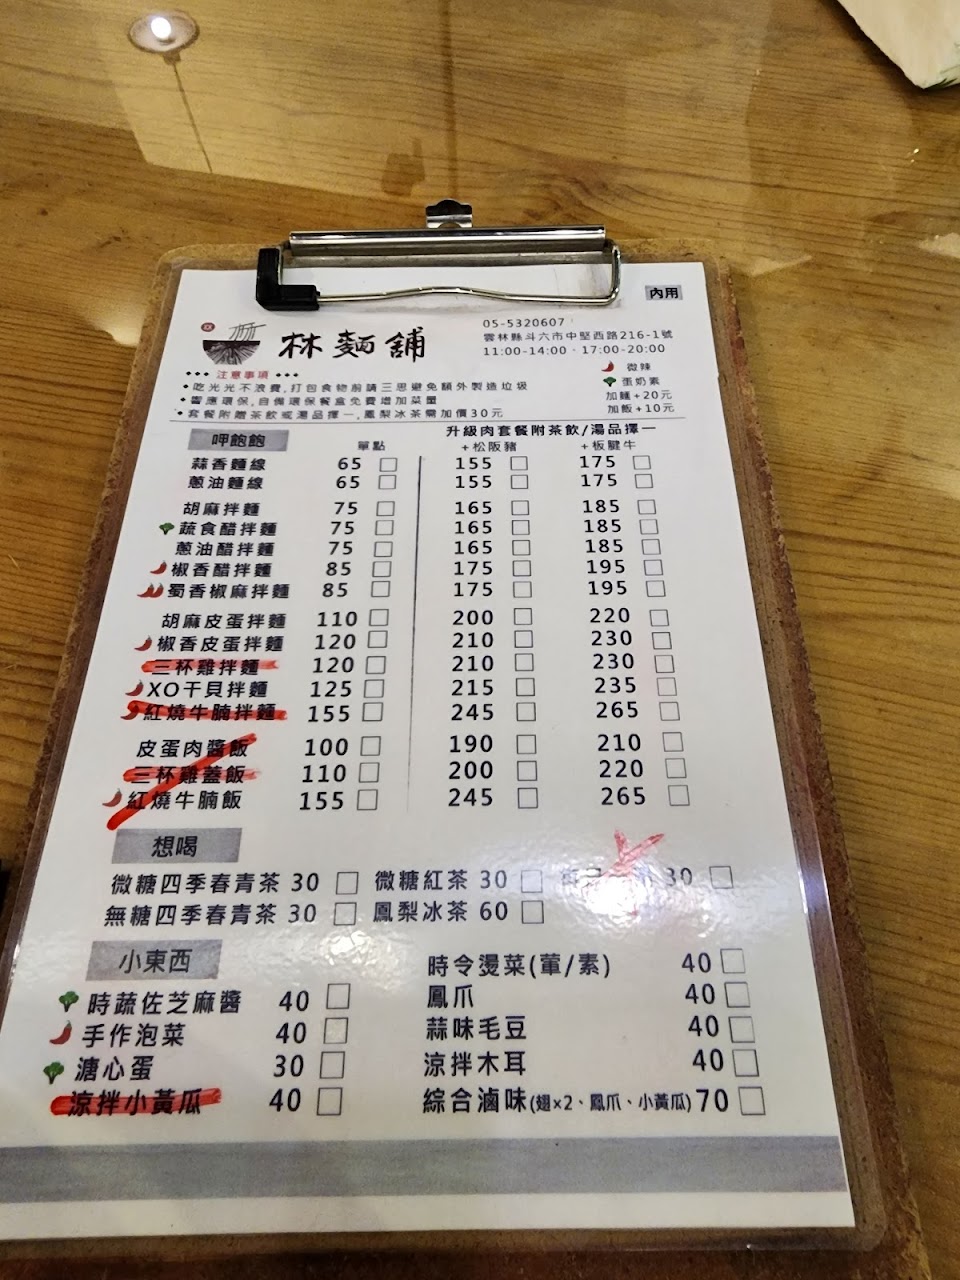 內用
林麵舖
05-5320607
雲林縣斗六市中堅西路216-1號
11:00-14:00、17:00-20:00
注意事項
吃光光不浪費,打包食物前請三思避免額外製造垃圾
響應環保,自備環保餐盒免費增加菜量
套餐附贈茶飲或湯品擇一,鳳梨冰茶需加價30元
微辣
蛋奶素
加麵+20元
加飯+10元
呷飽飽 單點 升級肉套餐附茶飲/湯品擇一
+松阪豬 +板腱牛
蒜香麵線 65 155 175
蔥油麵線 65 155 175
胡麻拌麵 75 165 185
蔬食醋拌麵 75 165 185
蔥油醋拌麵 75 165 185
椒香醋拌麵 85 175 195
蜀香椒麻拌麵 85 175 195
胡麻皮蛋拌麵 110 200 220
椒香皮蛋拌麵 120 210 230
三杯雞拌麵 120 210 230
XO干貝拌麵 125 215 235
紅燒牛腩拌麵 155 245 265
皮蛋肉醬飯 100 190 210
三杯雞蓋飯 110 200 220
紅燒牛腩飯 155 245 265
想喝
微糖四季春青茶 30 微糖紅茶 30 30
無糖四季春青茶 30 鳳梨冰茶 60
小東西
時蔬佐芝麻醬 40
手作泡菜 40
溏心蛋 30
涼拌小黃瓜 40
時令燙菜(葷/素) 40
鳳爪 40
蒜味毛豆 40
涼拌木耳 40
綜合滷味(翅×2、鳳爪、小黃瓜) 70